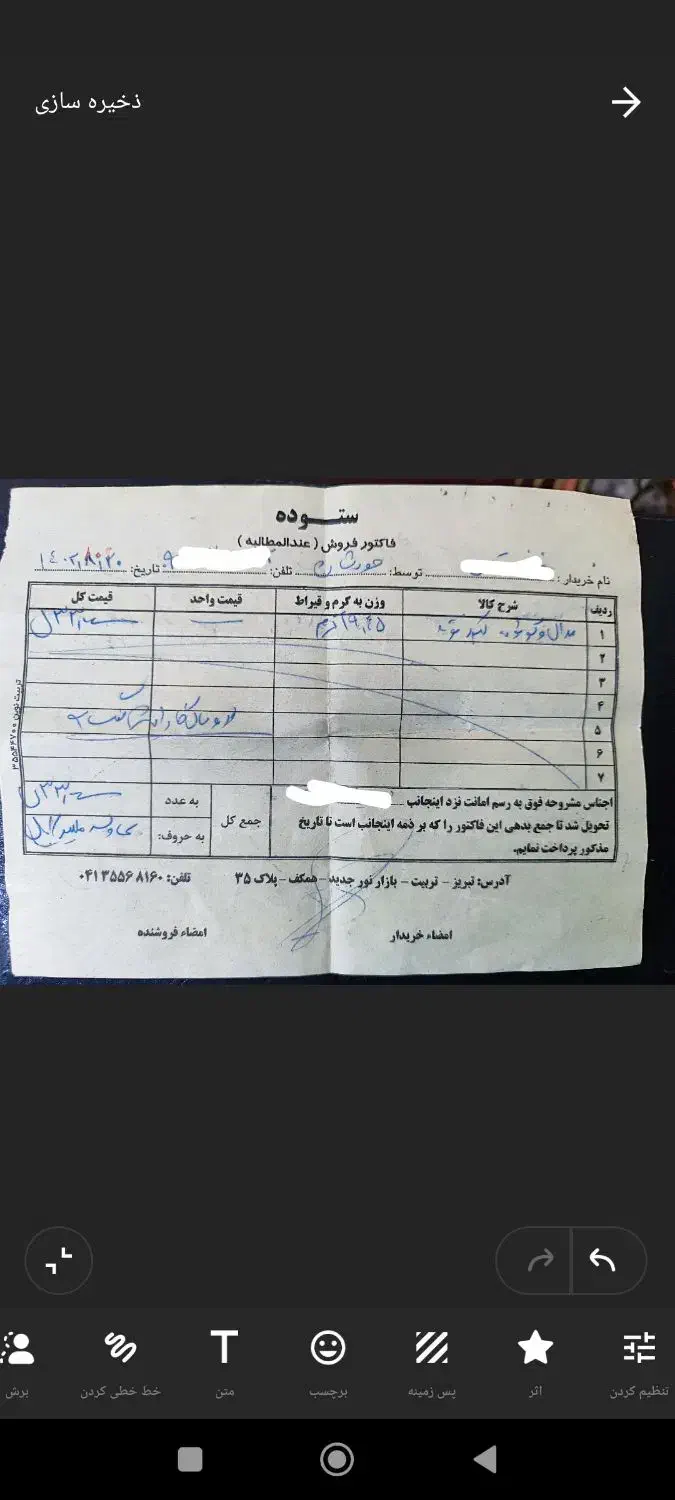 ذخیره سازی
ستــــوده
فاکتور فروش ( عندالمطالبه )
نام خریدار: توسط: تلفن: تاریخ: ۱۴۰۲٫۸٫۲۰
ردیف شرح کالا وزن به گرم و قیراط قیمت واحد قیمت کل
۱ مدال و گوشواره ۲۹٫۴۵ گرم
۲
۳
۴
۵
۶
۷
تربیت نوین ۳۵۵۴۴۷۰۰
اجناس مشروحه فوق به رسم امانت نزد اینجانب
تحویل شد تا جمع بدهی این فاکتور را که بر ذمه اینجانب است تا تاریخ
مذکور پرداخت نمایم.
جمع کل
به عدد
به حروف:
آدرس: تبریز – تربیت – بازار نور جدید – همکف – پلاک ۳۵ تلفن: ۸۱۶۰ ۳۵۵۶ ۰۴۱
امضاء خریدار امضاء فروشنده
تنظیم کردن
اثر
پس زمینه
برچسب
متن
خط خطی کردن
برش